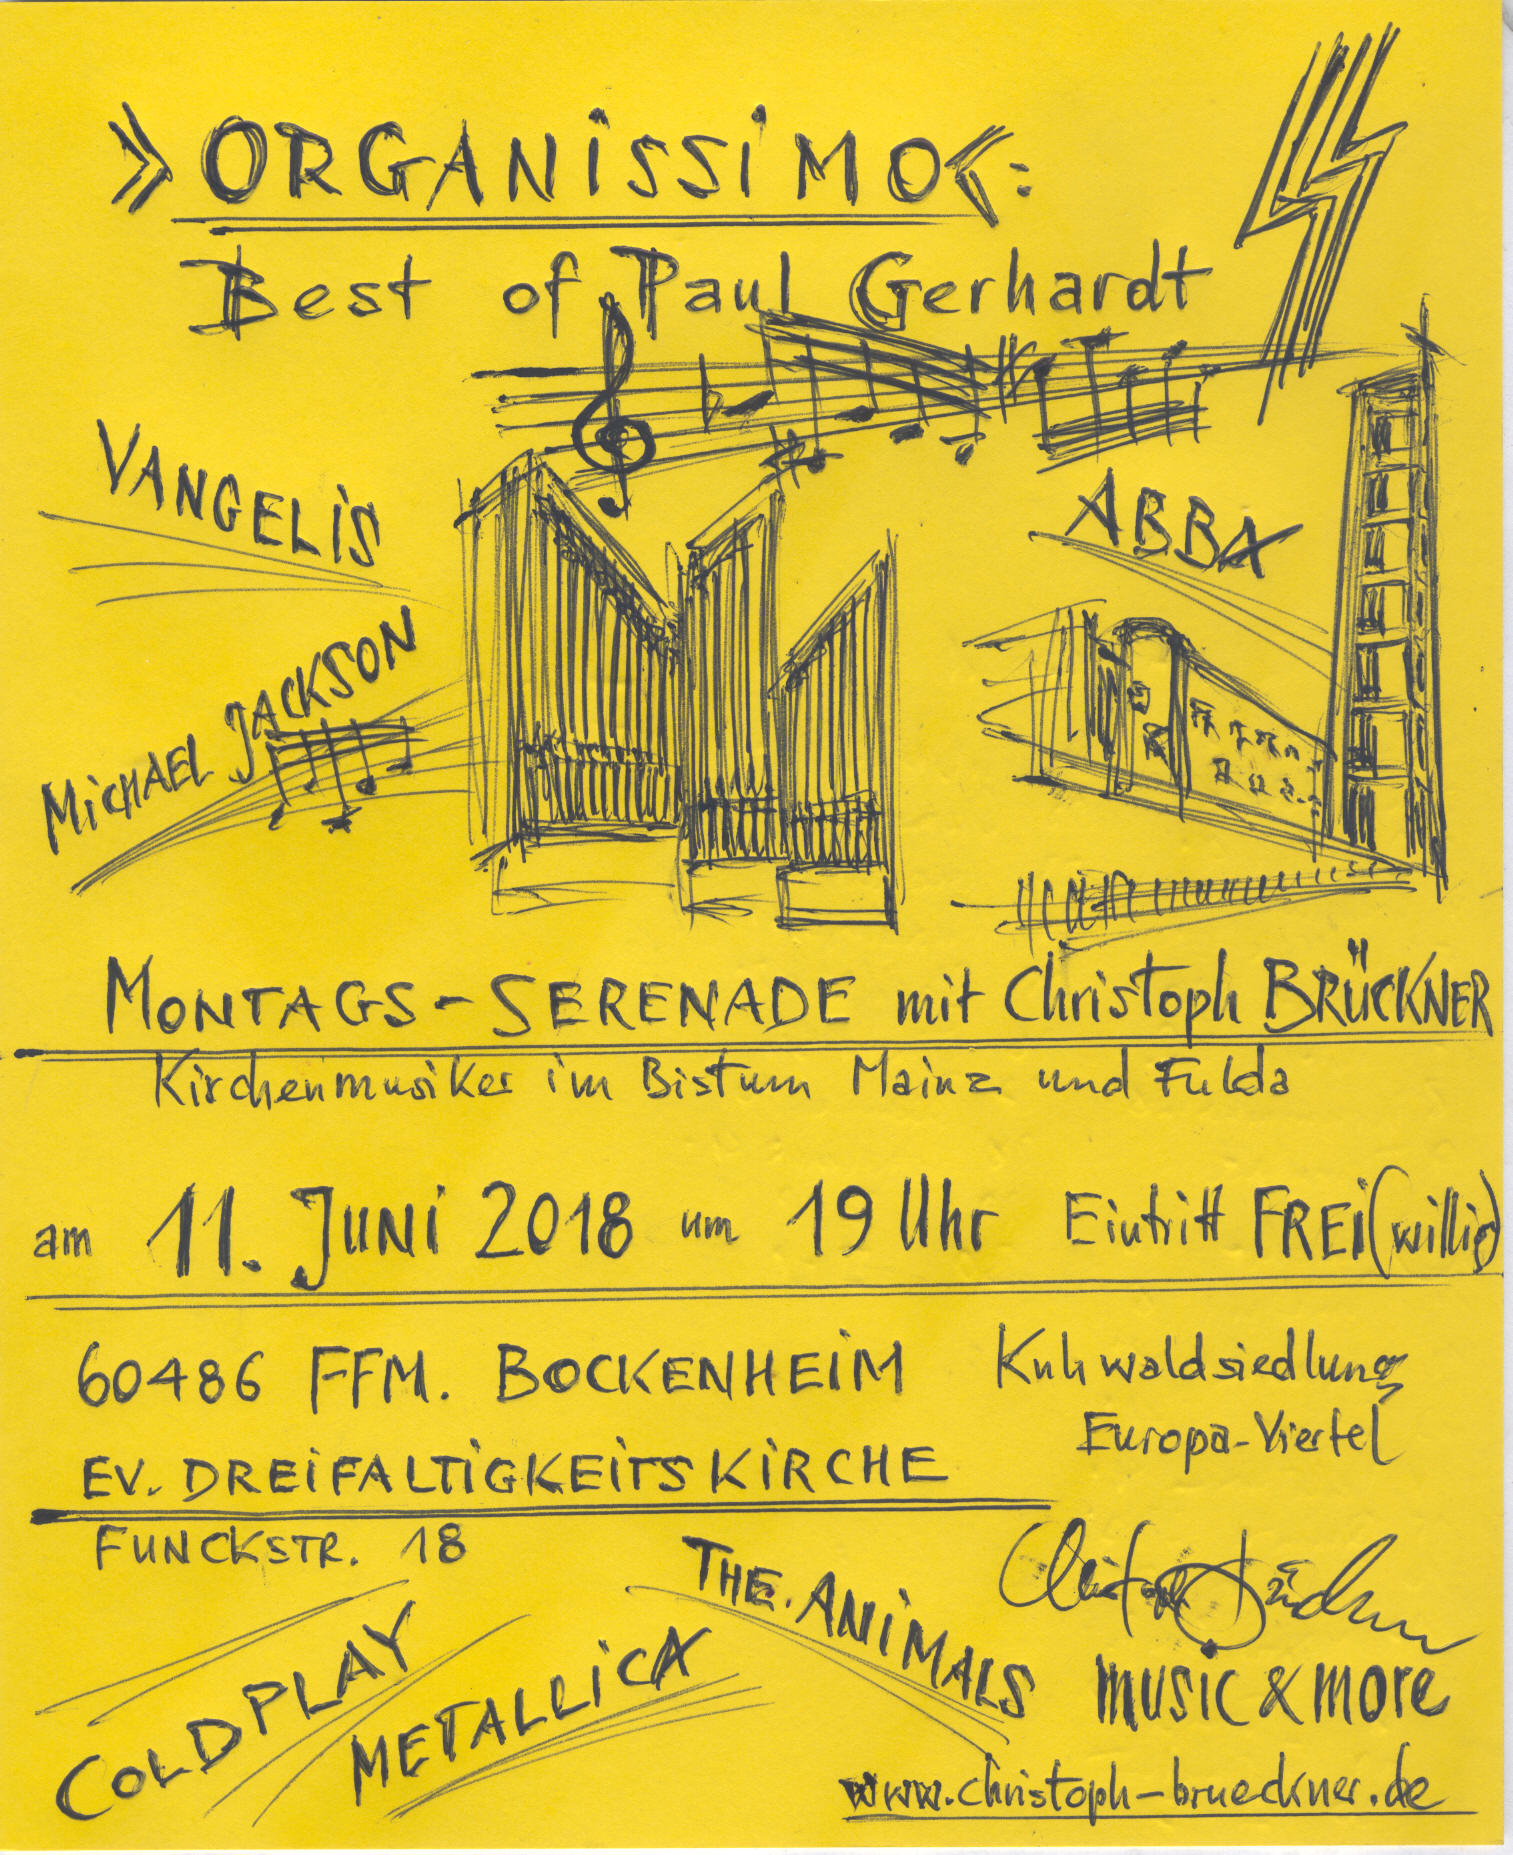 »ORGANISSIMO«:
Best of Paul Gerhardt
VANGELIS
ABBA
MICHAEL JACKSON
MONTAGS-SERENADE mit Christoph BRÜCKNER
Kirchenmusiker im Bistum Mainz und Fulda
am 11. JUNI 2018 um 19 Uhr Eintritt FREI(willig)
60486 FFM. BOCKENHEIM
Kuhwaldsiedlung
Europa-Viertel
EV. DREIFALTIGKEITSKIRCHE
FUNCKSTR. 18
THE ANIMALS
Christoph Brückner
COLDPLAY
METALLICA
music & more
www.christoph-brueckner.de